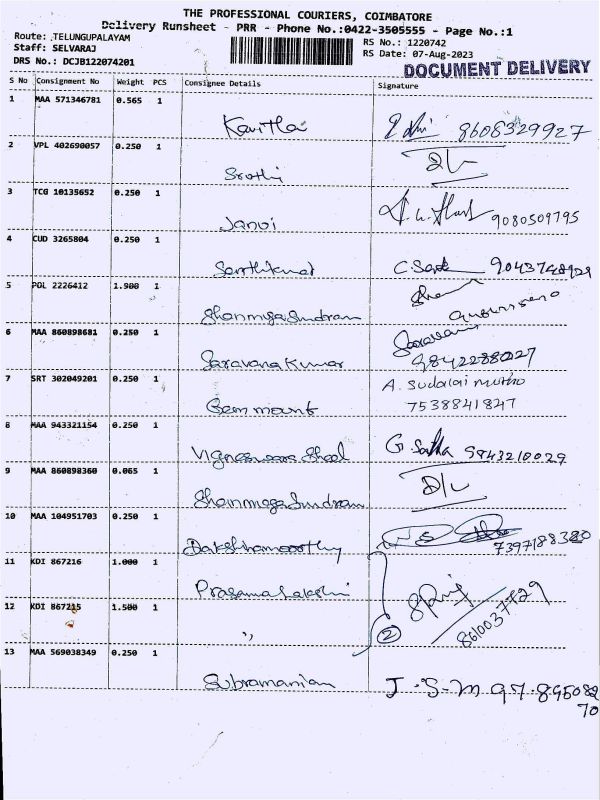 THE PROFESSIONAL COURIERS, COIMBATORE
Delivery Runsheet - PRR - Phone No.:0422-3505555 - Page No.:1
Route: TELUNGUPALAYAM
Staff: SELVARAJ
DRS No.: DCJB122074201
RS No.: 1220742
RS Date: 07-Aug-2023
DOCUMENT DELIVERY
S No Consignment No Weight PCS Consignee Details Signature
1 MAA 571346781 0.565 1
Kavitha 8608329927
2 VPL 402690057 0.250 1
Sruthi D/L
3 TCG 10135652 0.250 1
Janvi 9080509795
4 CUD 3265804 0.250 1
C. 9043748929
5 POL 2226412 1.900 1
Shanmugasundram
6 MAA 860898681 0.250 1
Saravana Kumar Saravana 9842288027
7 SRT 302049201 0.250 1
Gem mount A. Sudalai muthu
7538841847
8 MAA 943321154 0.250 1
G. 9843210029
9 MAA 860898360 0.065 1
Shanmugasundram D/L
10 MAA 104951703 0.250 1
Dakshnamoorthy 7397188380
11 KDI 867216 1.000 1
12 KDI 867215 1.500 1
" 2 8610037729
13 MAA 569038349 0.250 1
Subramanian J.S.M 97895082
70